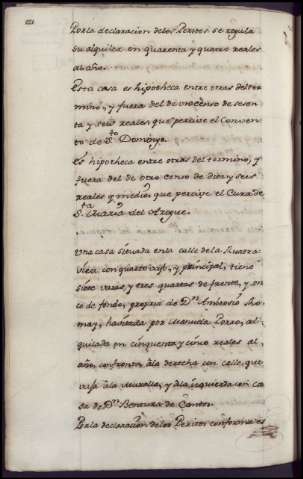 Por la declaracion delos Peritos se regula
su alquiler en quarenta y quatro reales
al año.
Esta casa es hipotheca entre otras del ter
mino, y fuera del de uno censo de sesen
ta y seis reales que percive el Conven
to de S.to Domingo.
Es hipotheca entre otras del termino, y
fuera del de otro censo de diez y seis
reales y medio que percive el Cura de
S.ta Maria del Azogue.
Una casa situada en la calle de la
Vieja con quarto vajo, y principal, tiene
siete varas, y tres quartas de frente, y on
ce de fondo, propia de D.n Ambrosio
havitada por Manuela Perez, al
quilada en cinquenta y cinco reales al
año, confronta ála derecha con calle, que
vaja ála Muralla, y ála izquierda con ca
sa de D.n Bentura de Cantos.
Por la declaracion delos Peritos conforme es